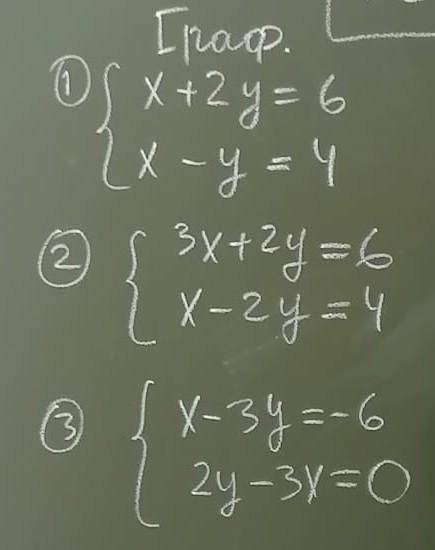 Граф.
① { x + 2y = 6
x - y = 4
② { 3x + 2y = 6
x - 2y = 4
③ { x - 3y = -6
2y - 3x = 0